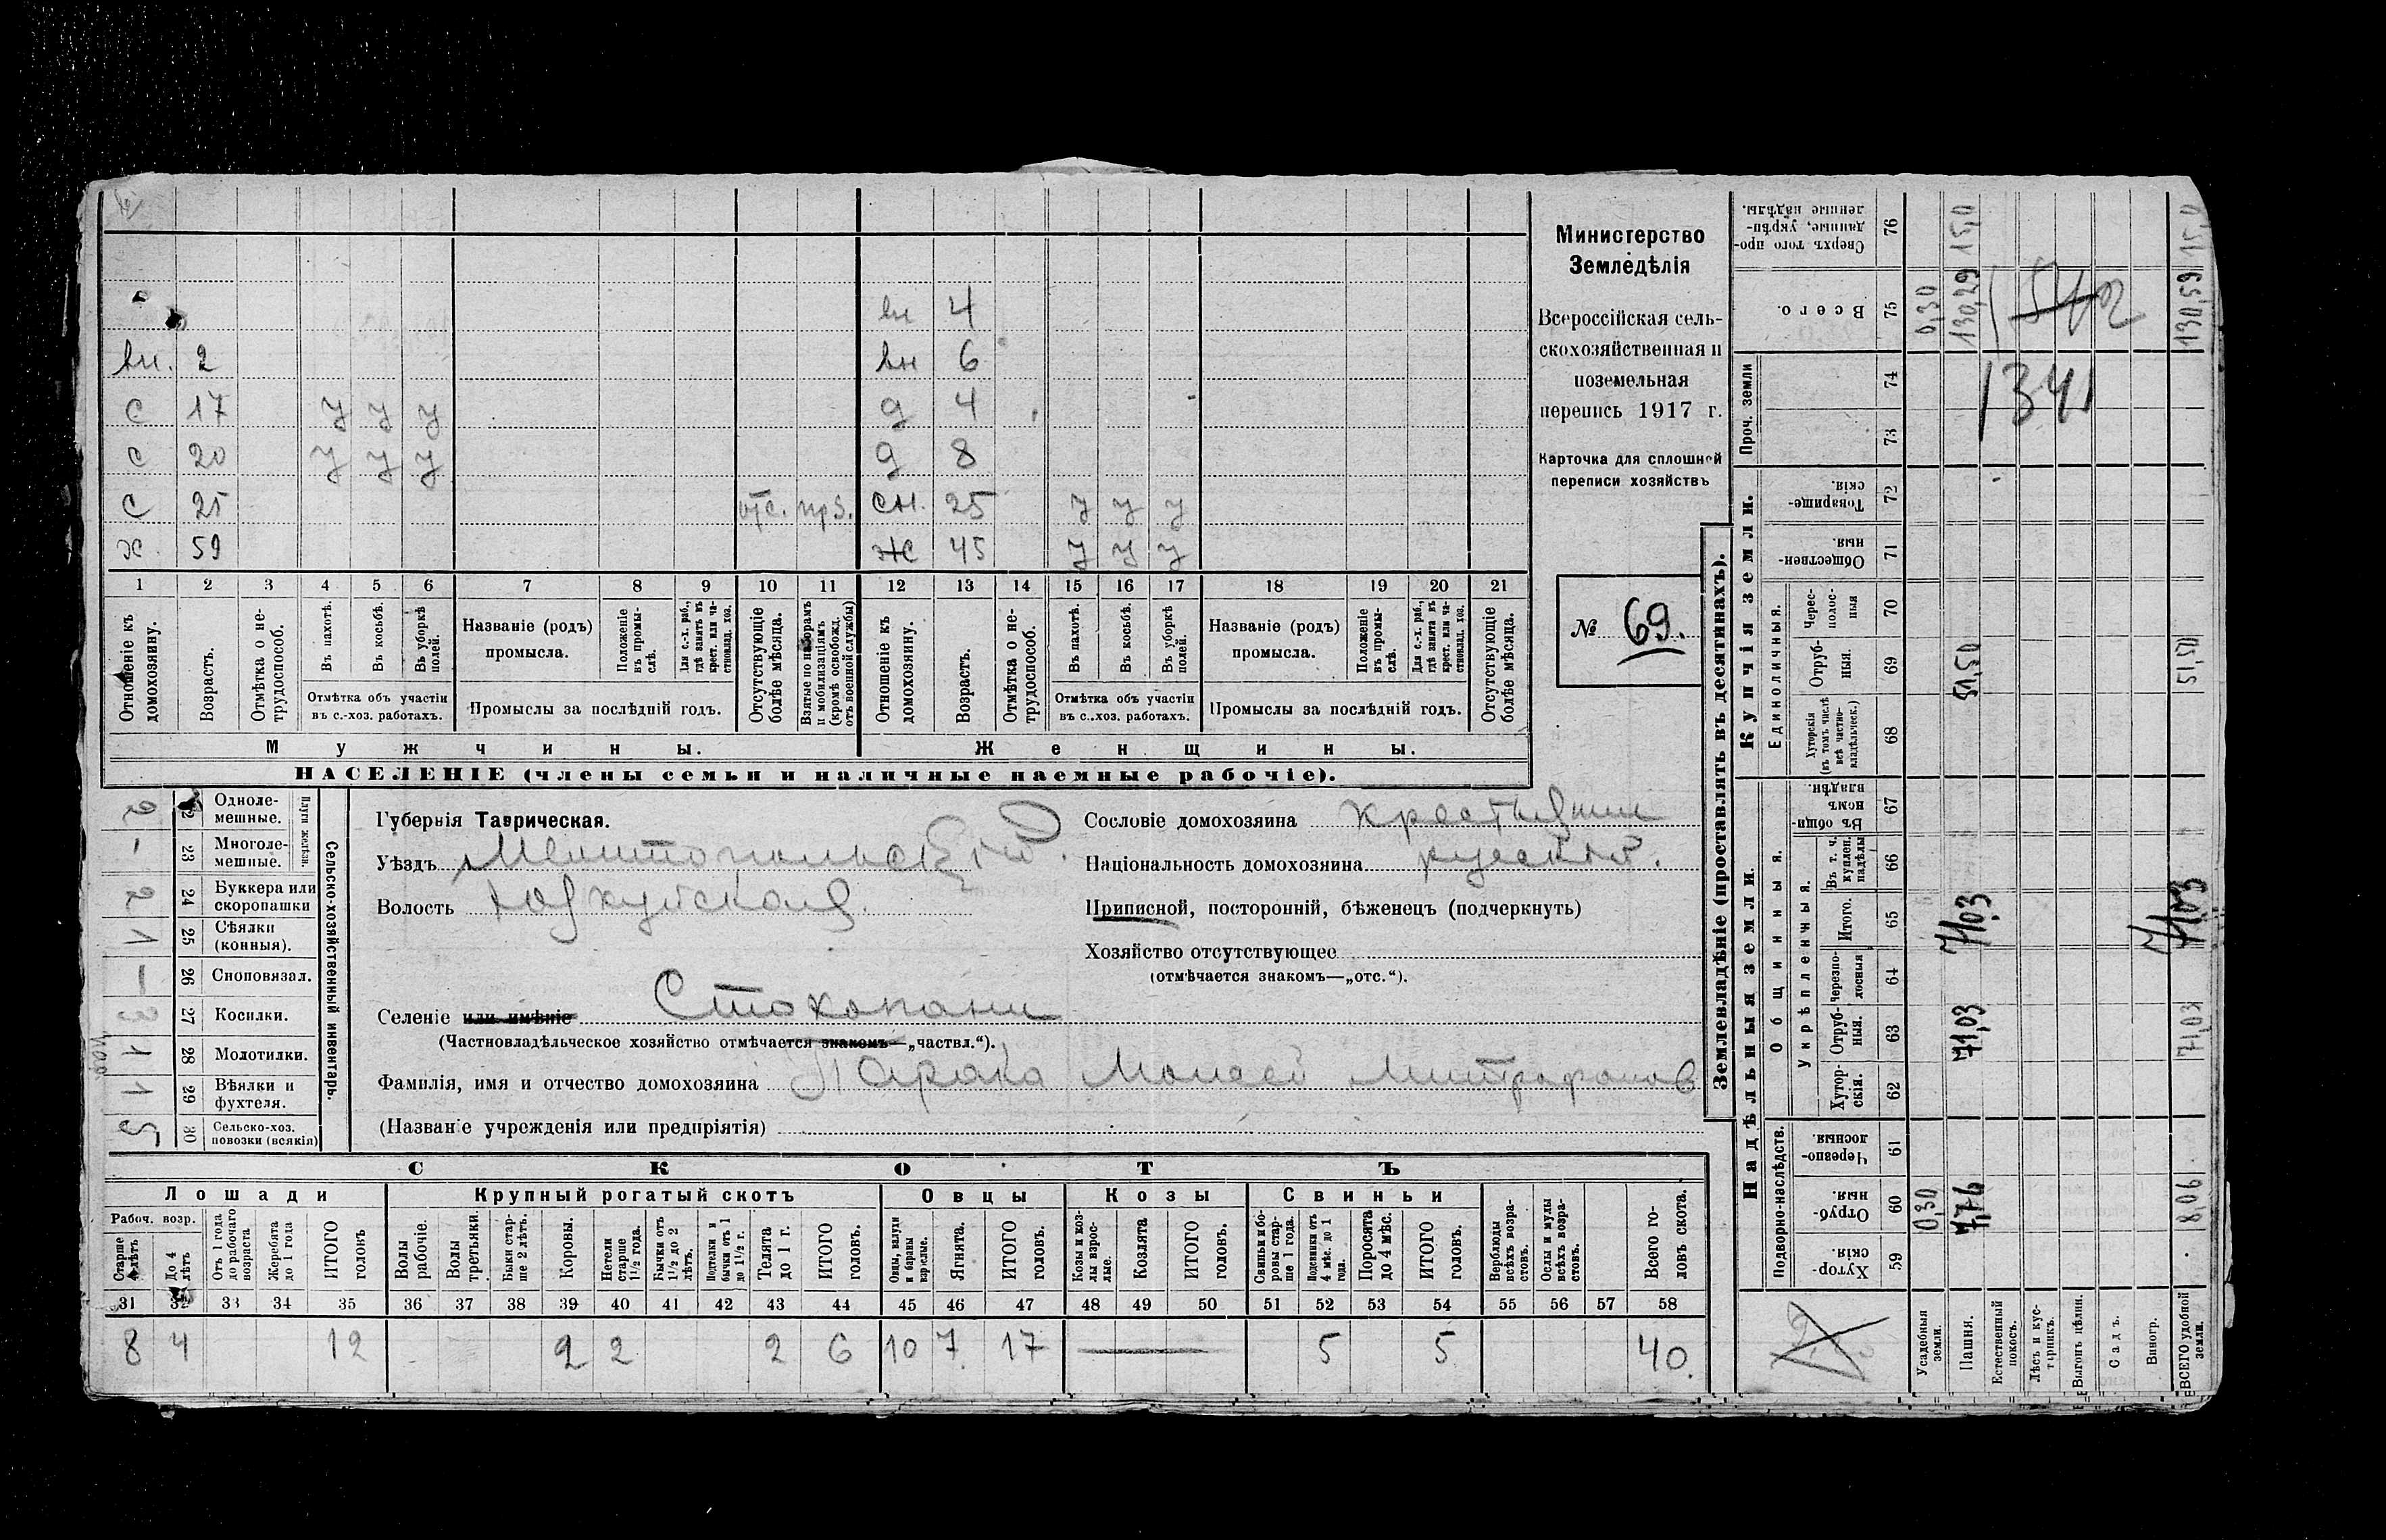 Министерство
Земледѣлія
Всероссійская сель-
скохозяйственная и
поземельная
перепись 1917 г.
Карточка для сплошной
переписи хозяйствъ
№ 69.
вн 4
вн. 2 вн 6
с 17 У У У д 4
с 20 У У У д 8
с 25 отс. прз. сн. 25 У У У
х. 59 ж 45 У У У
1 2 3 4 5 6 7 8 9 10 11 12 13 14 15 16 17 18 19 20 21
Отношеніе къ домохозяину.
Возрастъ.
Отмѣтка о не-
трудоспособ.
Въ пахотѣ.
Въ косьбѣ.
Въ уборкѣ полей.
Отмѣтка объ участіи
въ с.-хоз. работахъ.
Названіе (родъ)
промысла.
Положеніе въ промы-
слѣ.
Для с.-х. раб., гдѣ занятъ въ крест. или ча-
стновлад. хоз.
Промыслы за послѣдній годъ.
Отсутствующіе болѣе мѣсяца.
Взятые по наборамъ и мобилизаціямъ (кромѣ освобожд. отъ военной службы)
Отношеніе къ домохозяину.
Возрастъ.
Отмѣтка о не-
трудоспособ.
Въ пахотѣ.
Въ косьбѣ.
Въ уборкѣ полей.
Отмѣтка объ участіи
въ с.-хоз. работахъ.
Названіе (родъ)
промысла.
Положеніе въ промы-
слѣ.
Для с.-х. раб., гдѣ занята въ крест. или ча-
стновлад. хоз.
Промыслы за послѣдній годъ.
Отсутствующіе болѣе мѣсяца.
Мужчины. Женщины.
НАСЕЛЕНІЕ (члены семьи и наличные наемные рабочіе).
Сельско-хозяйственный инвентарь.
Плуги желѣзн.
2 22 Одноле-
мешные.
– 23 Многоле-
мешные.
2 24 Буккера или
скоропашки
1 25 Сѣялки
(конныя).
– 26 Сноповязал.
3 27 Косилки.
1 28 Молотилки.
1 29 Вѣялки и
фухтеля.
5 30 Сельско-хоз.
повозки (всякія)
Губернія Таврическая.
Уѣздъ Мелитопольскій.
Волость Юзкуйская.
Сословіе домохозяина крестьянин
Національность домохозяина русский.
Приписной, посторонній, бѣженецъ (подчеркнуть)
Хозяйство отсутствующее
(отмѣчается знакомъ—„отс.“).
Селеніе или имѣніе Стокопани
(Частновладѣльческое хозяйство отмѣчается знакомъ—„частвл.“).
Фамилія, имя и отчество домохозяина Моисей Митрофанов
(Названіе учрежденія или предпріятія)
СКОТЪ
Лошади Крупный рогатый скотъ Овцы Козы Свиньи
Рабоч. возр.
Старше 4 лѣтъ
До 4 лѣтъ
Отъ 1 года до рабочаго возраста
Жеребята до 1 года
ИТОГО головъ
Волы рабочіе.
Волы третьяки.
Быки стар-
ше 2 лѣтъ.
Коровы.
Нетели старше 1½ года.
Бычки отъ 1½ до 2 лѣтъ.
Подтелки и бычки отъ 1 до 1½ г.
Телята до 1 г.
ИТОГО головъ.
Овцы, валухи и бараны взрослые.
Ягнята.
ИТОГО головъ.
Козы и коз-
лы взрос-
лые.
Козлята
ИТОГО головъ.
Свиньи и бо-
ровы стар-
ше 1 года.
Подсвинки отъ 4 мѣс. до 1 года.
Поросята до 4 мѣс.
ИТОГО головъ.
Верблюды всѣхъ возра-
стовъ.
Ослы и мулы всѣхъ возра-
стовъ.
Всего го-
ловъ скота.
31 32 33 34 35 36 37 38 39 40 41 42 43 44 45 46 47 48 49 50 51 52 53 54 55 56 57 58
8 4 12 2 2 2 6 10 7 17 5 5 40
Землевладѣніе (проставлять въ десятинахъ).
Надѣльныя земли. Купчія земли. Проч. земли
Подворно-наслѣдств. Общинныя. Единоличныя.
Укрѣпленныя.
59 Хутор-
скія.
60 Отруб-
ныя.
61 Черезпо-
лосныя.
62 Хутор-
скія.
63 Отруб-
ныя.
64 Черезпо-
лосныя
65 Итого.
66 Въ т. ч. куплен. надѣлы
67 Въ общин-
номъ владѣн.
68 Хуторскія (въ томъ числѣ всѣ частно-
владѣльческ.)
69 Отруб-
ныя.
70 Черес-
полос-
ныя
71 Обществен-
ныя.
72 Товарище-
скія.
73
74
75 Всего.
76 Сверхъ того про-
данные, укрѣп-
ленные надѣлы.
Усадебныя земли. 0,30 0,30
Пашня. 7,76 71,03 71,03 51,50 130,29 15,0
Естественный покосъ.
Лѣсъ и кус-
тарникъ.
Выгонъ цѣлин.
Садъ.
Виногр.
ВСЕГО удобной земли. 8,06 71,03 71,03 51,50 130,59 15,0
1341